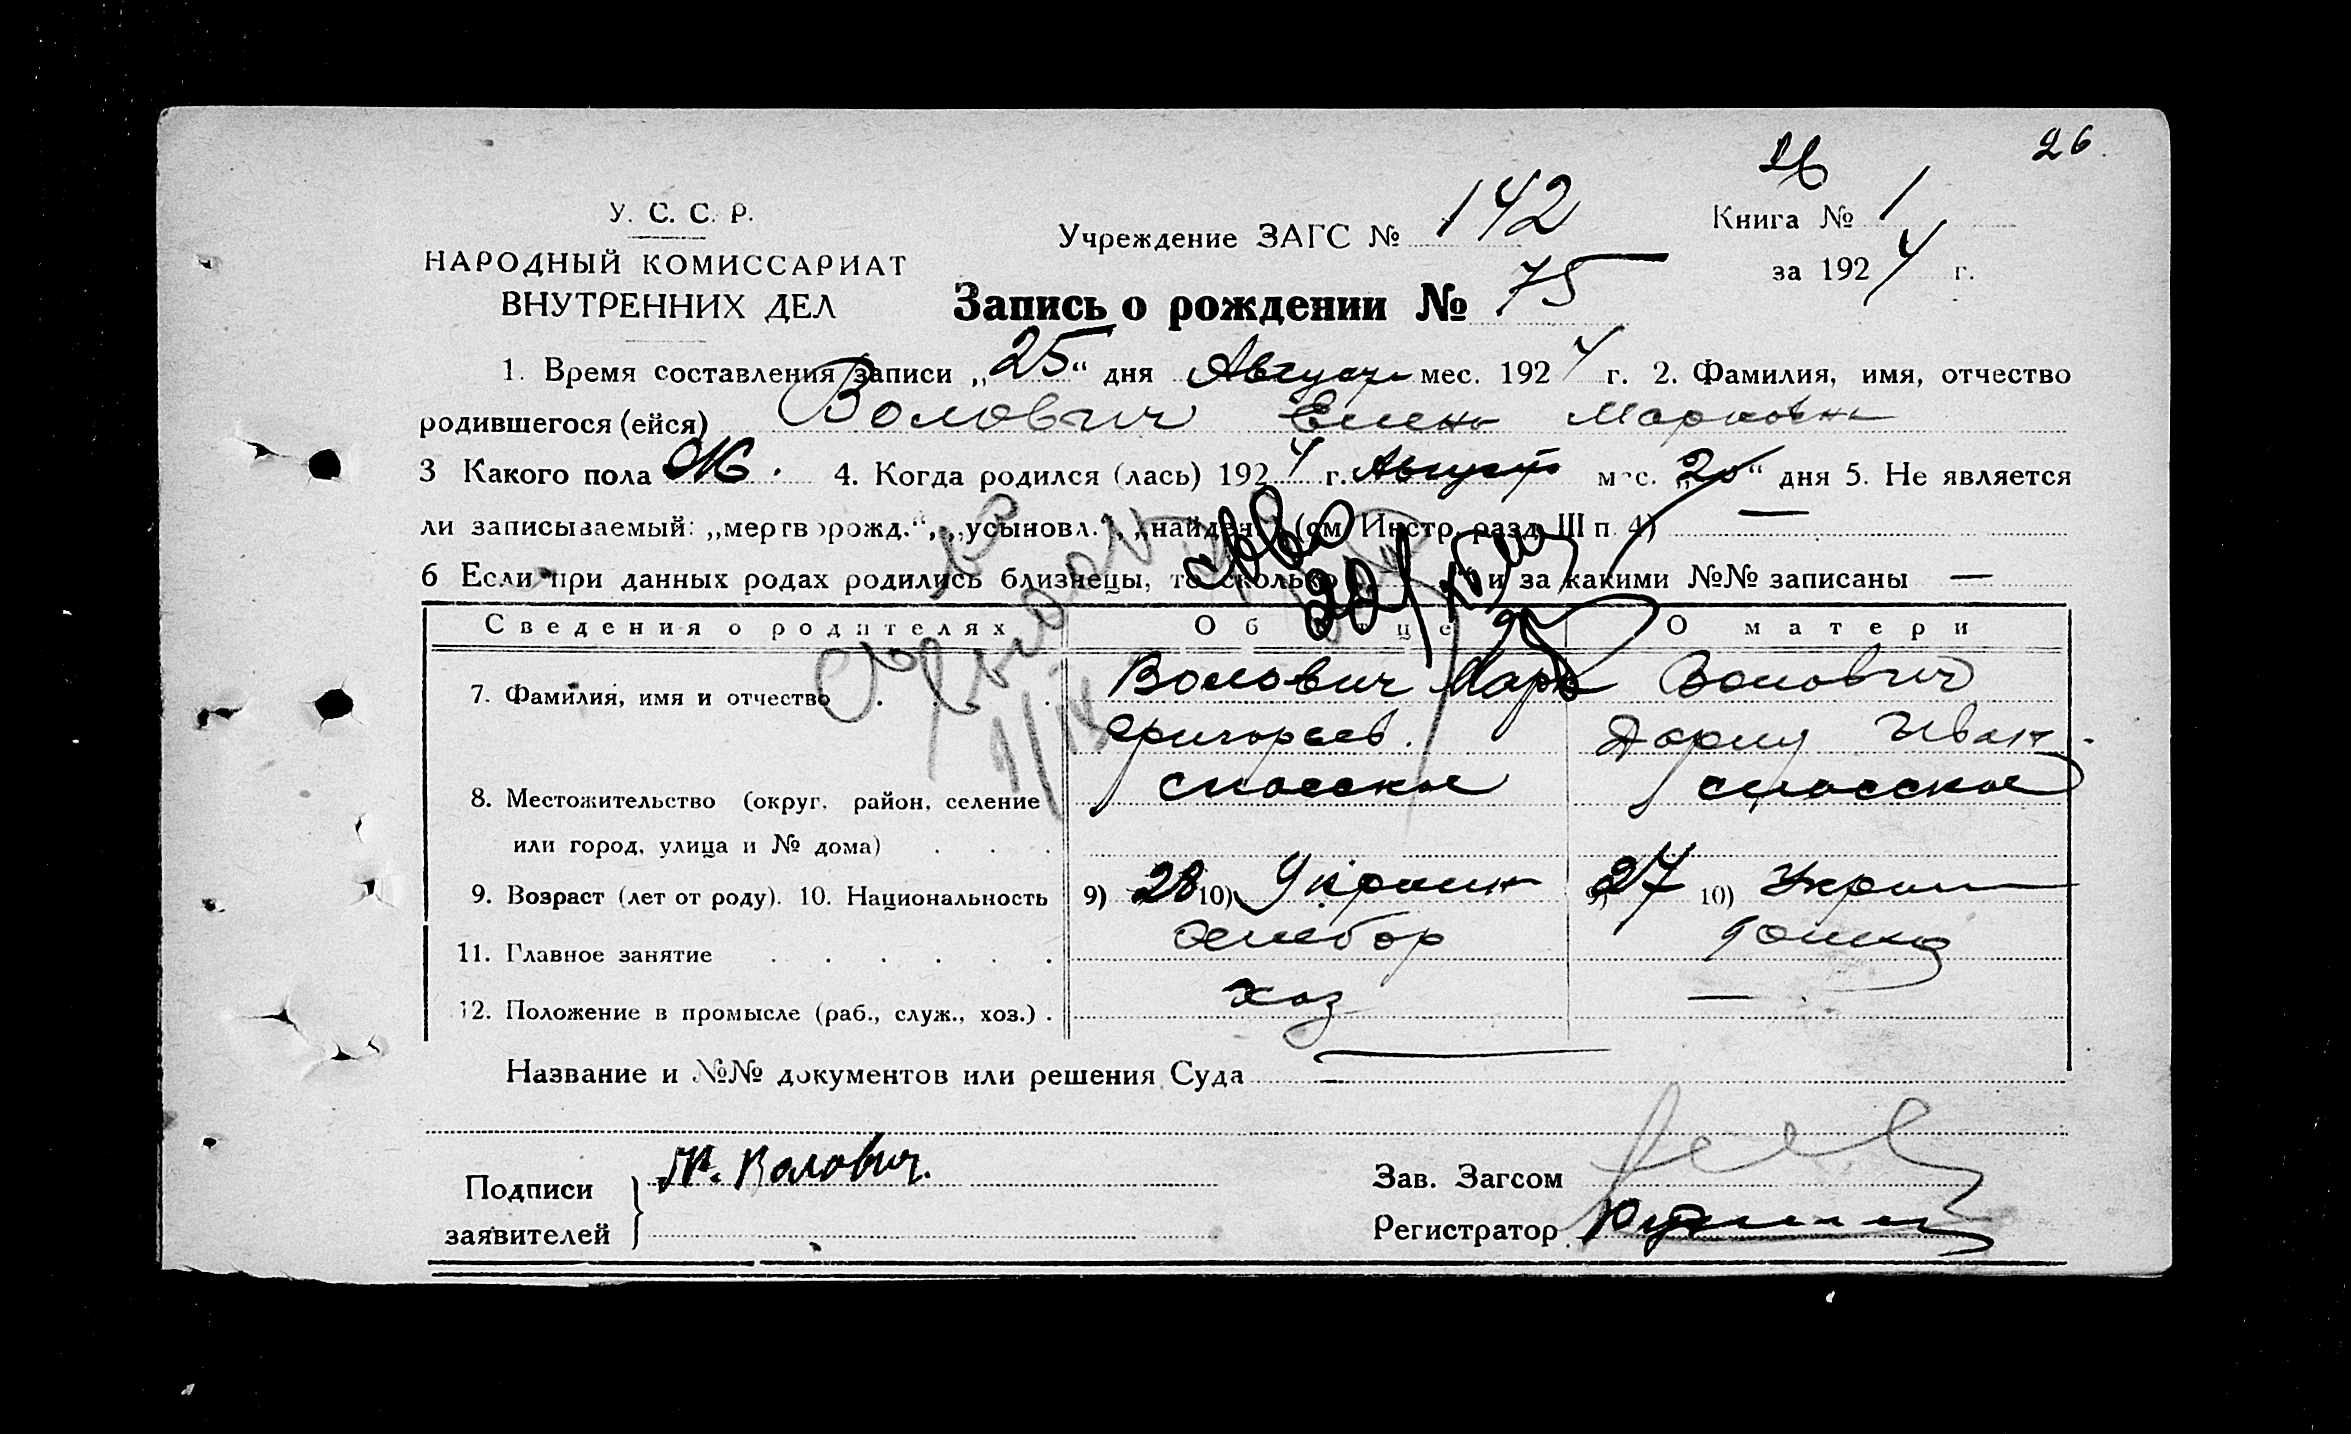 26
26
У. С. С. Р.
НАРОДНЫЙ КОМИССАРИАТ
ВНУТРЕННИХ ДЕЛ
Учреждение ЗАГС № 142
Книга № 1
за 1924 г.
Запись о рождении № 75
1. Время составления записи „25“ дня Август мес. 1924 г. 2. Фамилия, имя, отчество
родившегося (ейся) Волович Елена Марковна
3 Какого пола Ж. 4. Когда родился (лась) 1924 г. Август мес. „20“ дня 5. Не является
ли записываемый: „мертворожд.“, „усыновл.“, „найден.“ (см Инстр. разд. III п. 4) —
6 Если при данных родах родились близнецы, то сколько и за какими №№ записаны —
Сведения о родителях Об отце О матери
7. Фамилия, имя и отчество Волович Марк Волович
Григорьев. Дария Иван.
8. Местожительство (округ, район, селение Спасское Спасское
или город, улица и № дома)
9. Возраст (лет от роду). 10. Национальность 9) 28 10) Украин 9) 27 10) Украин
11. Главное занятие Хлебор
12. Положение в промысле (раб., служ., хоз.) Хоз —
Название и №№ документов или решения Суда —
Подписи М. Волович. Зав. Загсом
заявителей Регистратор